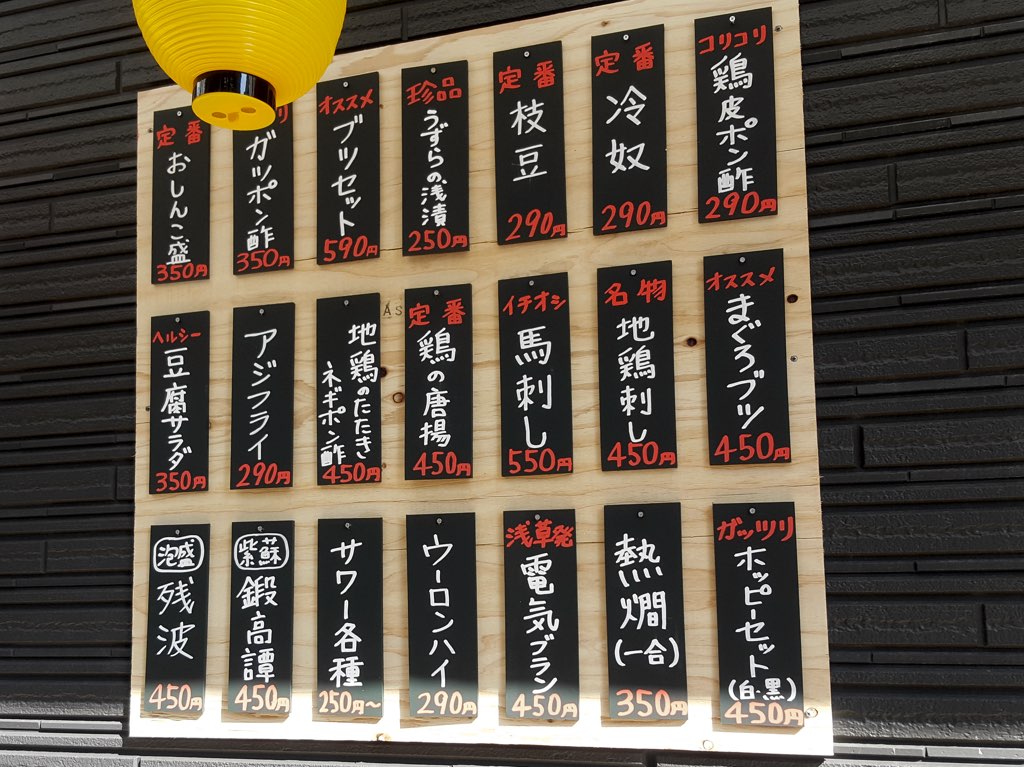 コリコリ
鶏皮ポン酢
290円
定番
冷奴
290円
定番
枝豆
290円
珍品
うずらの浅漬
250円
オススメ
ブツセット
590円
ガツポン酢
350円
定番
おしんこ盛
350円
オススメ
まぐろブツ
450円
名物
地鶏刺し
450円
イチオシ
馬刺し
550円
定番
鶏の唐揚
450円
地鶏のたたき
ネギポン酢
450円
アジフライ
290円
ヘルシー
豆腐サラダ
350円
ガッツリ
ホッピーセット
(白・黒)
450円
熱燗
(一合)
350円
浅草発
電気ブラン
450円
ウーロンハイ
290円
サワー各種
250円〜
紫蘇
鍛高譚
450円
泡盛
残波
450円